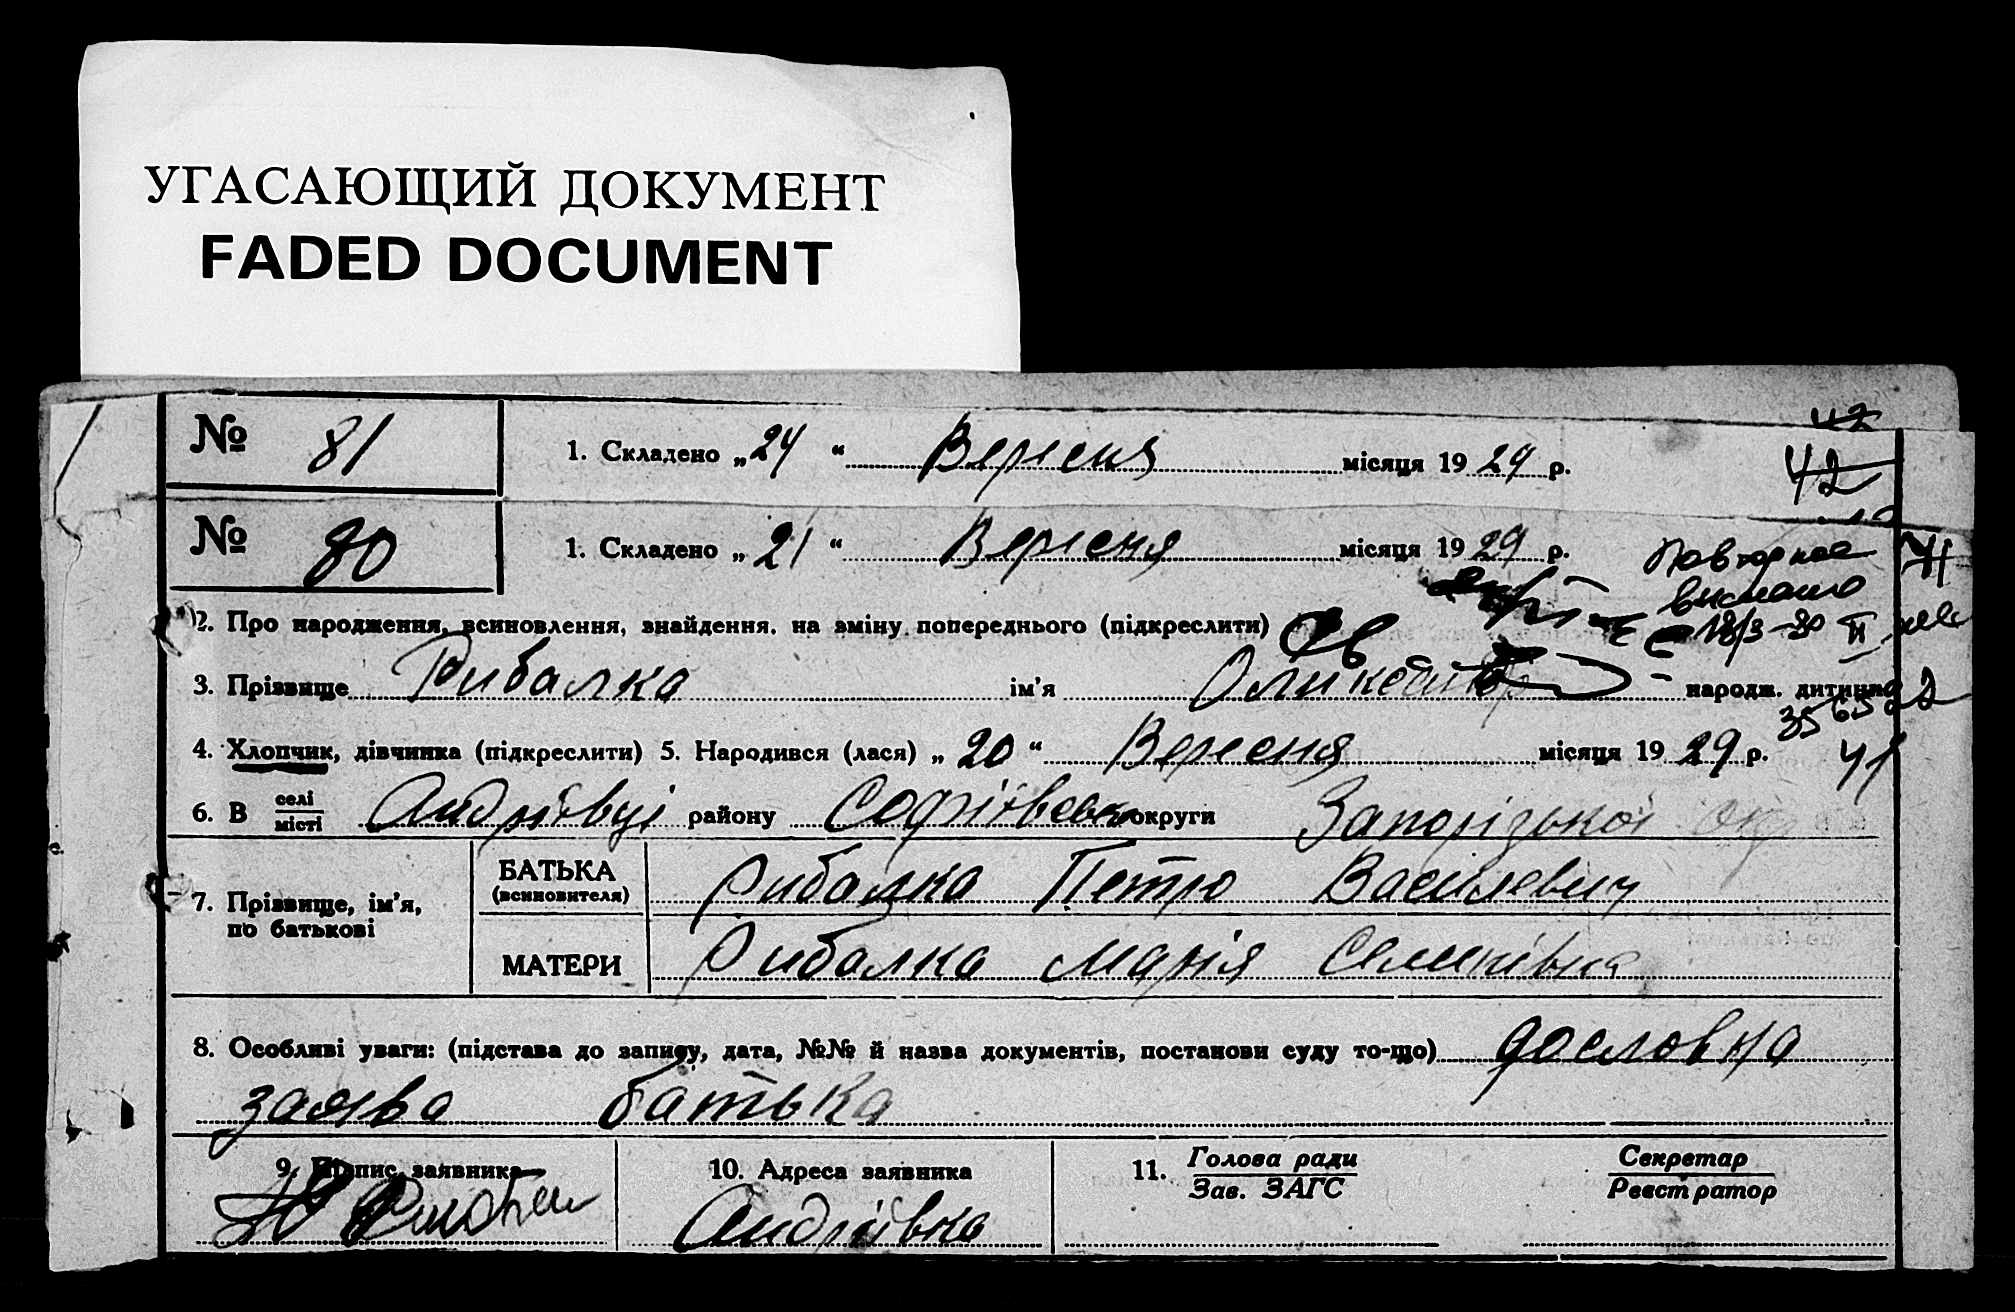 УГАСАЮЩИЙ ДОКУМЕНТ
FADED DOCUMENT
42
№ 81 1. Складено „ 24 “ Вересня місяця 19 29 р. 42
№ 80 1. Складено „ 21 “ Вересня місяця 19 29 р. Повторное 41
выслано
2. Про народження, всиновлення, знайдення, на зміну попереднього (підкреслити) 18/3-80 II
3. Прізвище Рибалка ім'я народж. дитини
4. Хлопчик, дівчинка (підкреслити) 5. Народився (лася) „ 20 “ Вересня місяця 19 29 р. 41
6. В селі / місті Андріївці району Софіївськ округи Запорізької окр
7. Прізвище, ім'я, по батькові
БАТЬКА (всиновителя) Рибалка Петро Василевич
МАТЕРИ Рибалка Марія Семенівна
8. Особливі уваги: (підстава до запису, дата, №№ й назва документів, постанови суду то-що) дословна
заява батька
9. Підпис заявника 10. Адреса заявника 11. Голова ради / Зав. ЗАГС Секретар / Реєстратор
Андріївка